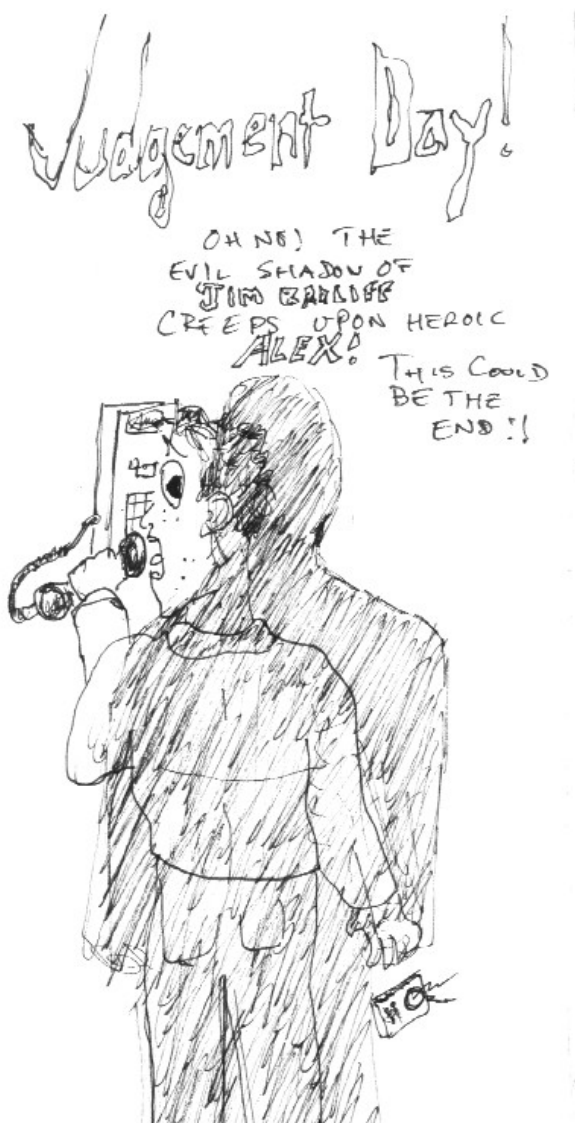 Judgement Day!
OH NO! THE
EVIL SHADOW OF
JIM BAILIFF
CREEPS UPON HEROIC
ALEX!
THIS COULD
BE THE
END!!